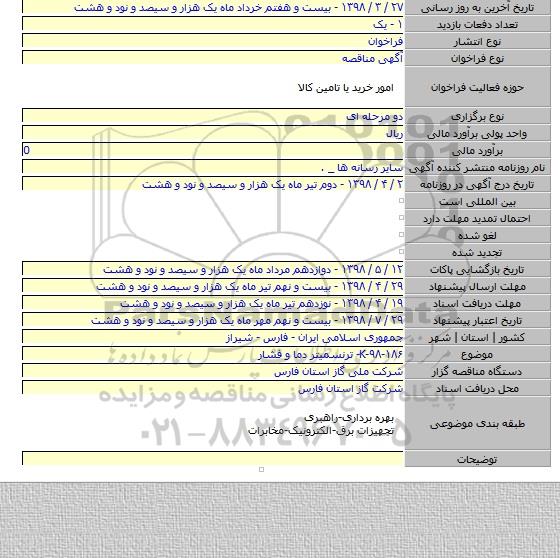 تاریخ آخرین به روز رسانی ۲۷ / ۳ / ۱۳۹۸ - بیست و هفتم خرداد ماه یک هزار و سیصد و نود و هشت
تعداد دفعات بازدید ۱ - یک
نوع انتشار فراخوان
نوع فراخوان آگهی مناقصه
حوزه فعالیت فراخوان امور خرید یا تامین کالا
نوع برگزاری دو مرحله ای
واحد پولی برآورد مالی ریال
برآورد مالی 0
نام روزنامه منتشر کننده آگهی سایر رسانه ها _ .
تاریخ درج آگهی در روزنامه ۲ / ۴ / ۱۳۹۸ - دوم تیر ماه یک هزار و سیصد و نود و هشت
بین المللی است
احتمال تمدید مهلت دارد
لغو شده
تجدید شده
تاریخ بازگشایی پاکات ۱۲ / ۵ / ۱۳۹۸ - دوازدهم مرداد ماه یک هزار و سیصد و نود و هشت
مهلت ارسال پیشنهاد ۲۹ / ۴ / ۱۳۹۸ - بیست و نهم تیر ماه یک هزار و سیصد و نود و هشت
مهلت دریافت اسناد ۱۹ / ۴ / ۱۳۹۸ - نوزدهم تیر ماه یک هزار و سیصد و نود و هشت
تاریخ اعتبار پیشنهاد ۲۹ / ۷ / ۱۳۹۸ - بیست و نهم مهر ماه یک هزار و سیصد و نود و هشت
کشور | استان | شهر جمهوری اسلامی ایران - فارس - شیراز
موضوع K-۹۸-۱۸۶- ترنسمیتر دما و فشار
دستگاه مناقصه گزار شرکت ملی گاز استان فارس
محل دریافت اسناد شرکت گاز استان فارس
پایگاه اطلاع رسانی مناقصه و مزایده
طبقه بندی موضوعی بهره برداری-راهبری
تجهیزات برق-الکترونیک-مخابرات
۰۲۱-۸۸۳۴۹۶۷۰-۵
توضیحات